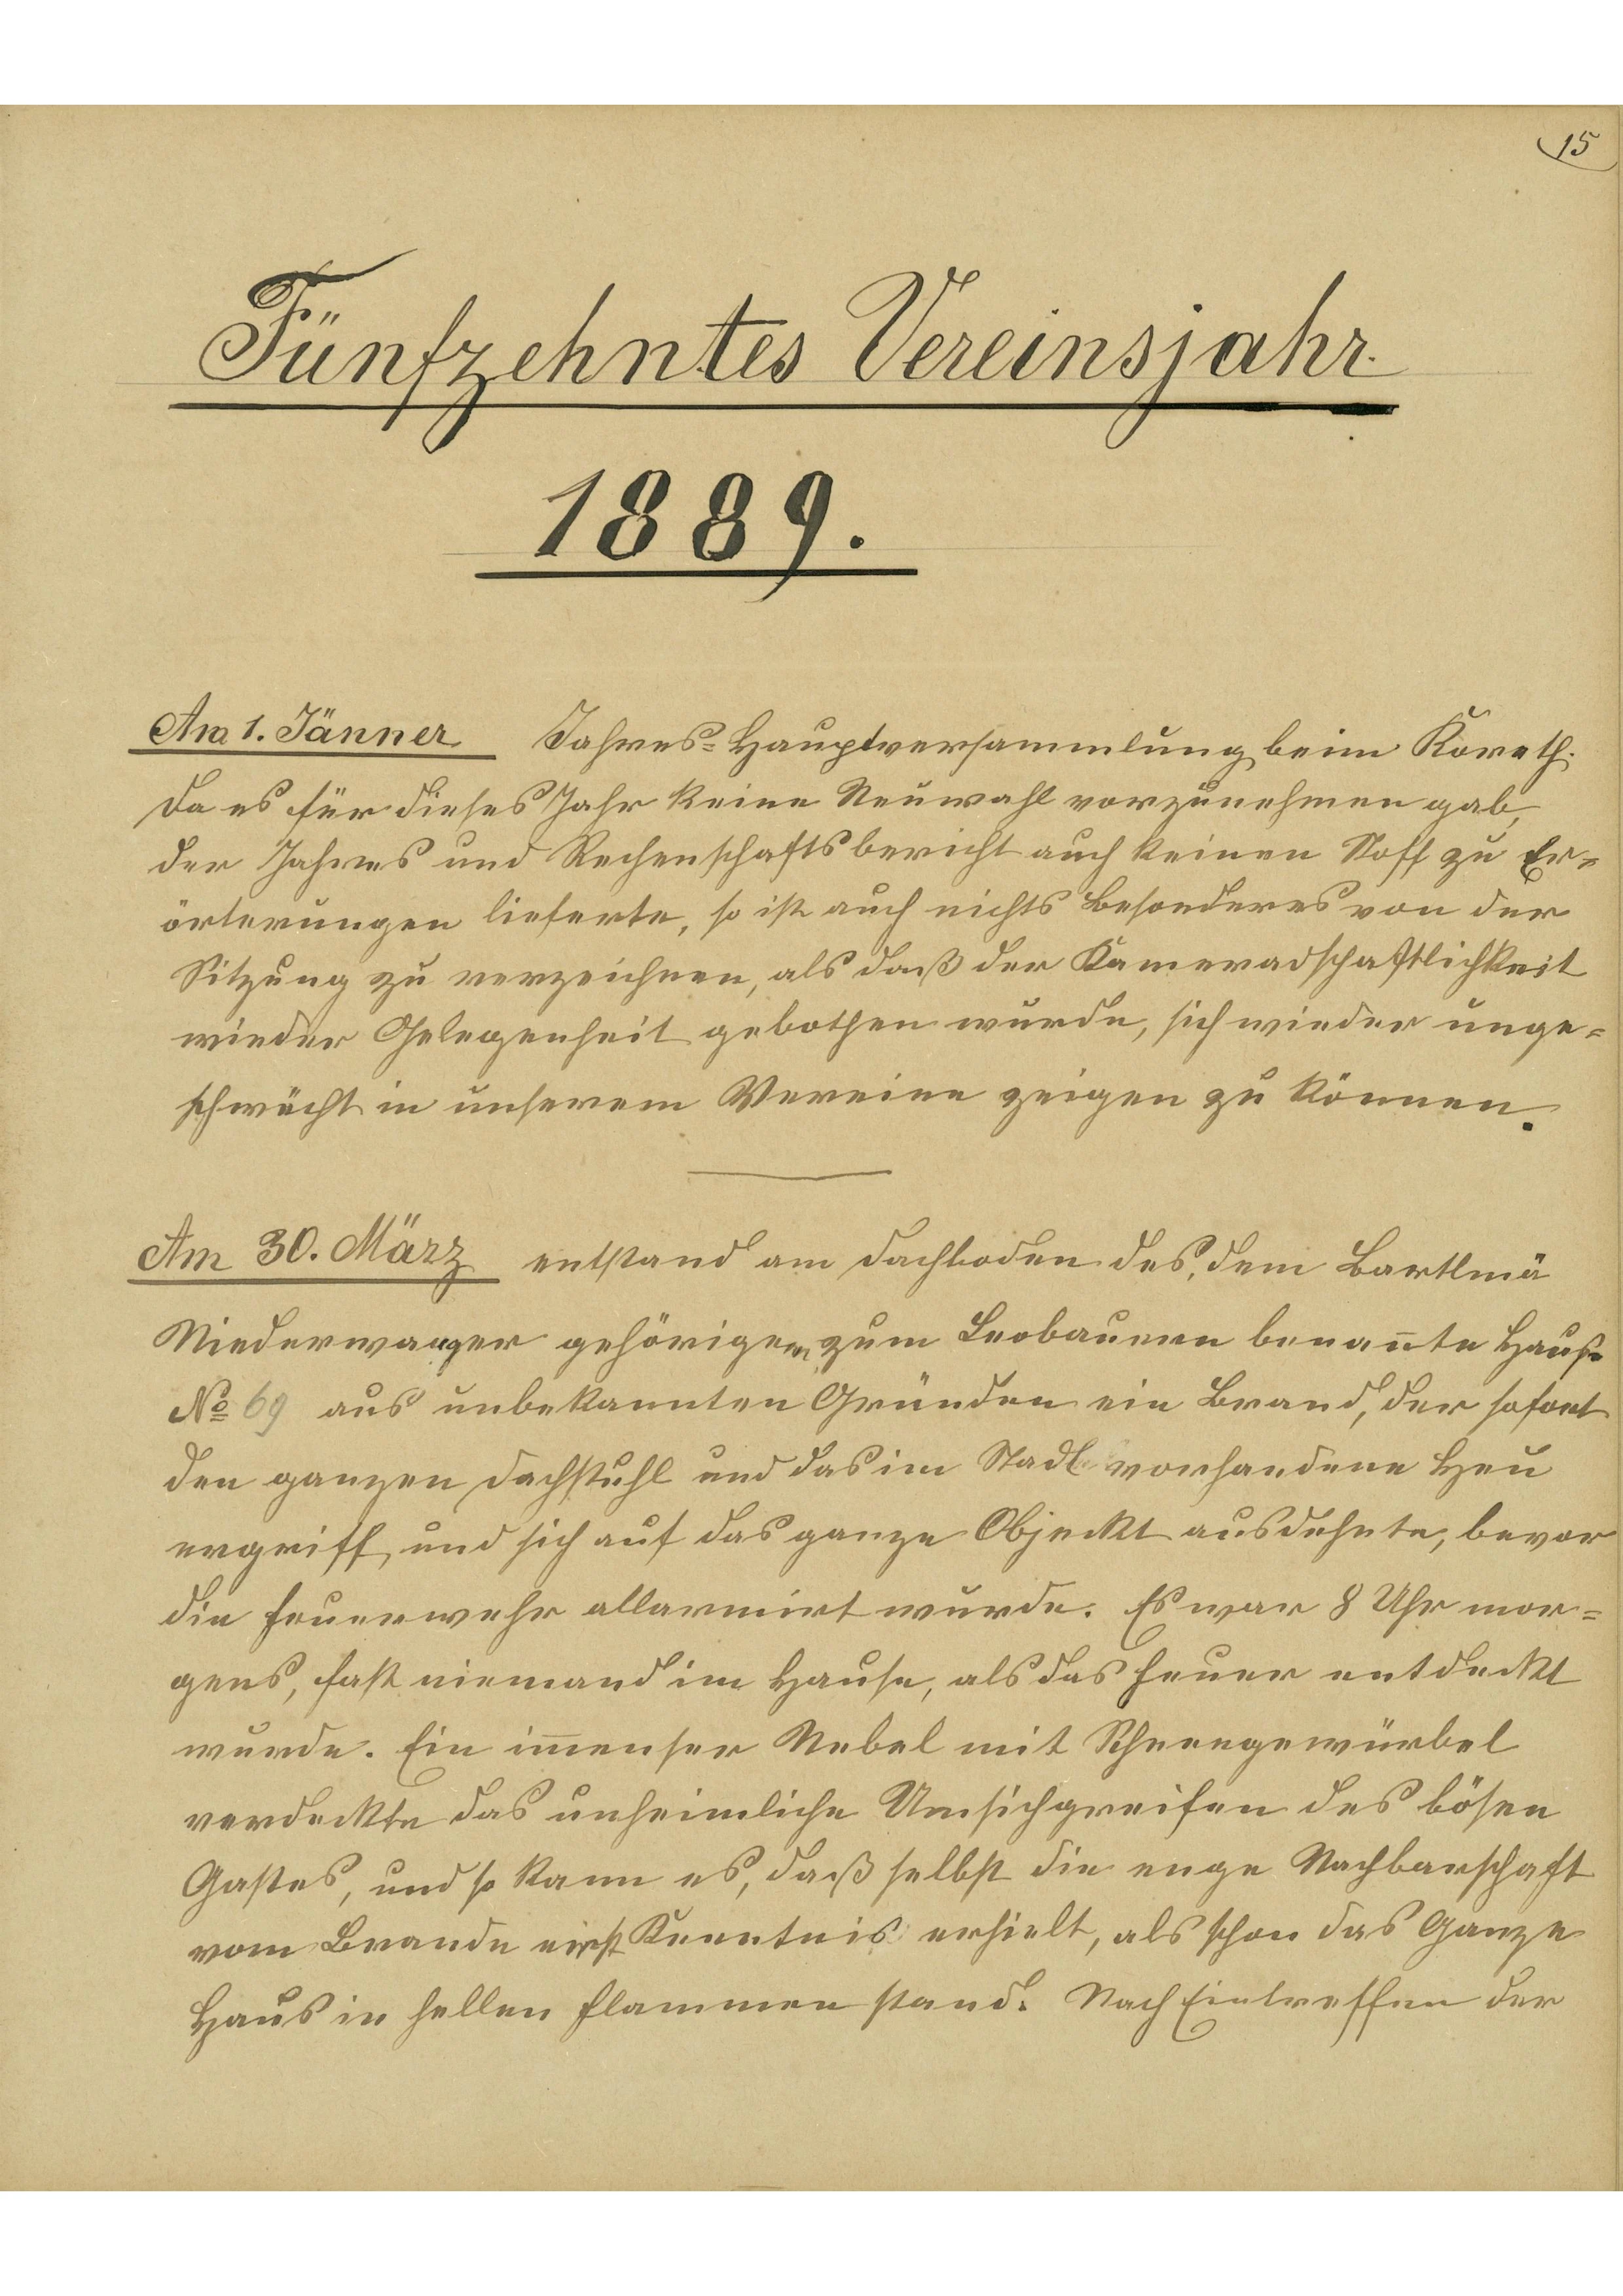 15
Fünfzehntes Vereinsjahr
1889.
Am 1. Jänner Jahres-Hauptversammlung beim Koreth.
Da es für dieses Jahr keine Neuwahl vorzunehmen gab,
der Jahres und Rechenschaftsbericht auch keinen Stoff zu Er=
örterungen lieferte, so ist auch nichts Besonderes von der
Sitzung zu verzeichnen, als daß der Kameradschaftlichkeit
wieder Gelegenheit gebothen wurde, sich wieder unge=
schwächt in unserem Vereine zeigen zu können.
Am 30. März entstand am Dachboden des, dem Bartlmä
Niederwanger gehörigen, zum Leobauern benannte Hause
No 69 aus unbekannten Gründen ein Brand, der sofort
den ganzen Dachstuhl und das im Stadl vorhandene Heu
ergriff, und sich auf das ganze Objeckt ausdehnte, bevor
die Feuerwehr allarmirt wurde. Es war 8 Uhr mor=
gens, fast niemand im Hause, als das Feuer entdeckt
wurde. Ein im̅enser Nebel mit Schneegewürbel
verdeckte das unheimliche Umsichgreifen des bösen
Gastes, und so kam es, daß selbst die enge Nachbarschaft
vom Brande erst Kenntnis erhielt, als schon das Ganze
Haus in hellen Flammen stand. Nach Eintreffen der